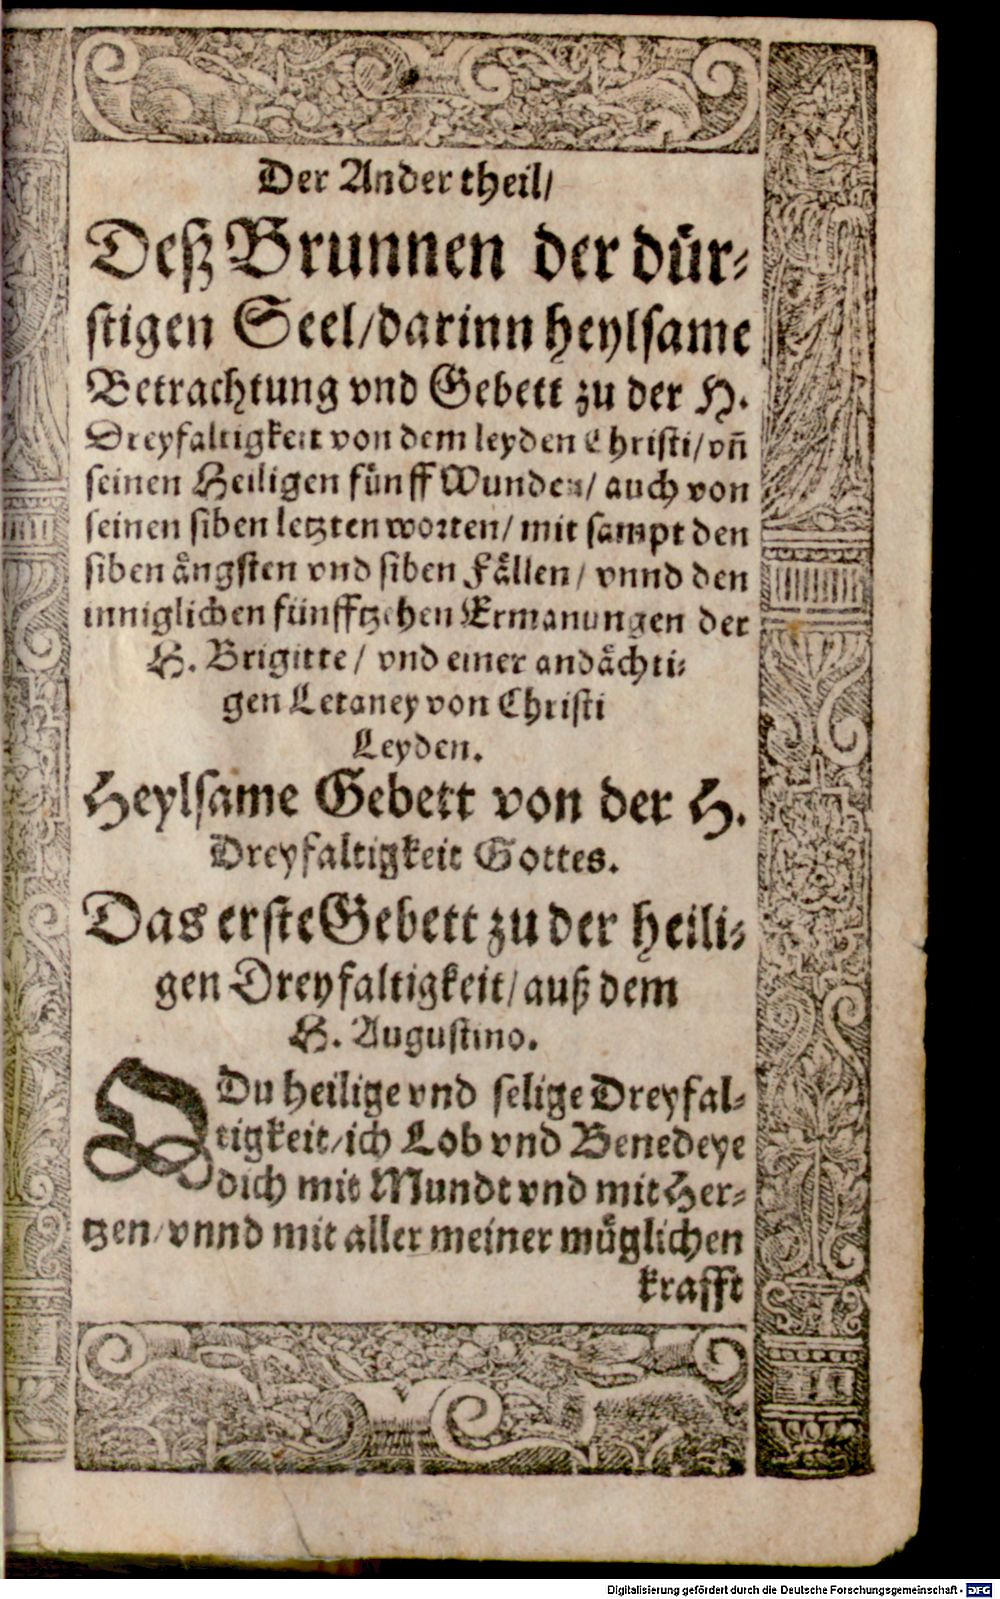 Der Ander theil/
Deß Brunnen der dür⸗
stigen Seel/darinn heylsame
Betrachtung vnd Gebett zu der H.
Dreyfaltigkeit von dem leyden Christi/vn̄
seinen Heiligen fünff Wunden/ auch von
seinen siben letzten worten/ mit sampt den
siben ängsten vnd siben Fällen/ vnnd den
inniglichen fünfftzehen Ermanungen der
H. Brigitte/ vnd einer andächti⸗
gen Letaney von Christi
Leyden.
Heylsame Gebett von der H.
Dreyfaltigkeit Gottes.
Das erste Gebett zu der heili⸗
gen Dreyfaltigkeit/auß dem
H. Augustino.
O Du heilige vnd selige Dreyfal⸗
tigkeit/ich Lob vnd Benedeye
dich mit Mundt vnd mit Her⸗
tzen/vnnd mit aller meiner müglichen
krafft
Digitalisierung gefördert durch die Deutsche Forschungsgemeinschaft - DFG